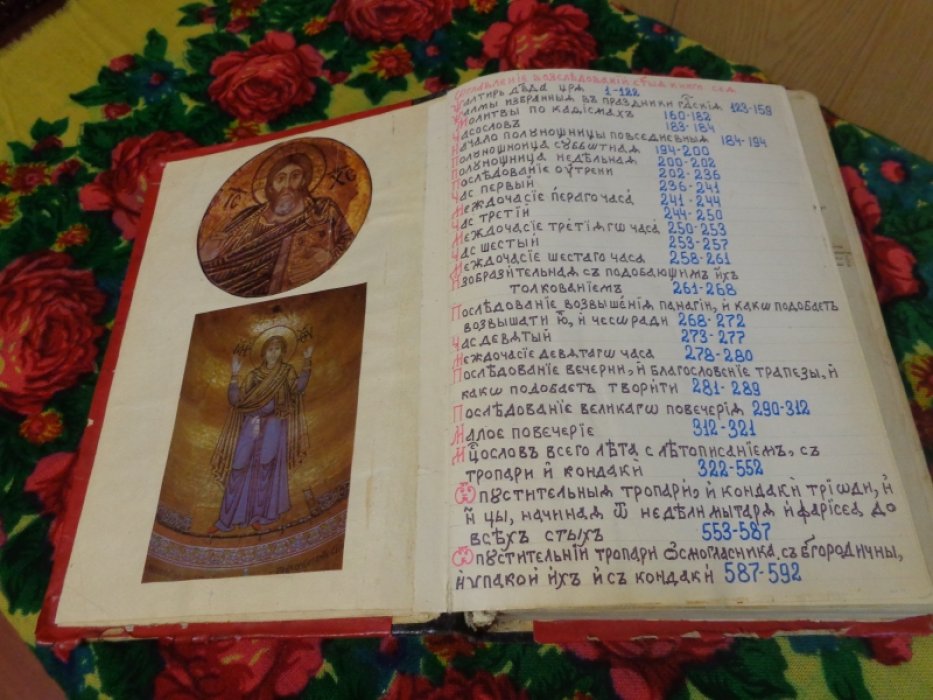 Оглавленїе
Ѱалтирь дв҃да цр҃ѧ 1-122
Ѱалмы избранныѧ въ праздники гдⷭ҇кїѧ 123-159
Молитвы по каѳїсмахъ 160-182
Часословъ 183-184
Начало полꙋнощницы повседневныѧ 184-194
Полꙋнощница сꙋббѡтнаѧ 194-200
Полꙋнощница недѣльнаѧ 200-202
Послѣдованїе оутрени 202-236
Час первый 236-241
Междочасїе перагочаса 241-244
Час третїй 244-250
Междочасїе третїѧгѡ часа 250-253
Час шестый 253-257
Междочасїе шестаго часа 258-261
Изобразительнаѧ съ подобающимъ ихъ
толкованїемъ 261-268
Послѣдованїе возвышенїѧ панагїи, и какѡ подобаетъ
возвышати ю, и чесѡ ради 268-272
Час девѧтый 273-277
Междочасїе девѧтагѡ часа 278-280
Послѣдованїе вечерни, и благословенїе трапезы, и
какѡ подобаетъ творити 281-289
Послѣдованїе великагѡ повечерїѧ 290-312
Малое повечерїе 312-321
Мцⷭ҇ословъ всего лѣта с лѣтописанїемъ, съ
тропари и кондаки 322-552
Ѿпꙋстительныѧ тропари, и кондаки трїѡди, и
н҃цы, начинаѧ ѿ недѣли мытарѧ и фарїсеа до
всѣхъ стыхъ 553-587
Ѿпꙋстительнїи тропари ѻсмогласника, съ бг҃ородичны,
и ѵпакои ихъ и съ кондаки 587-592